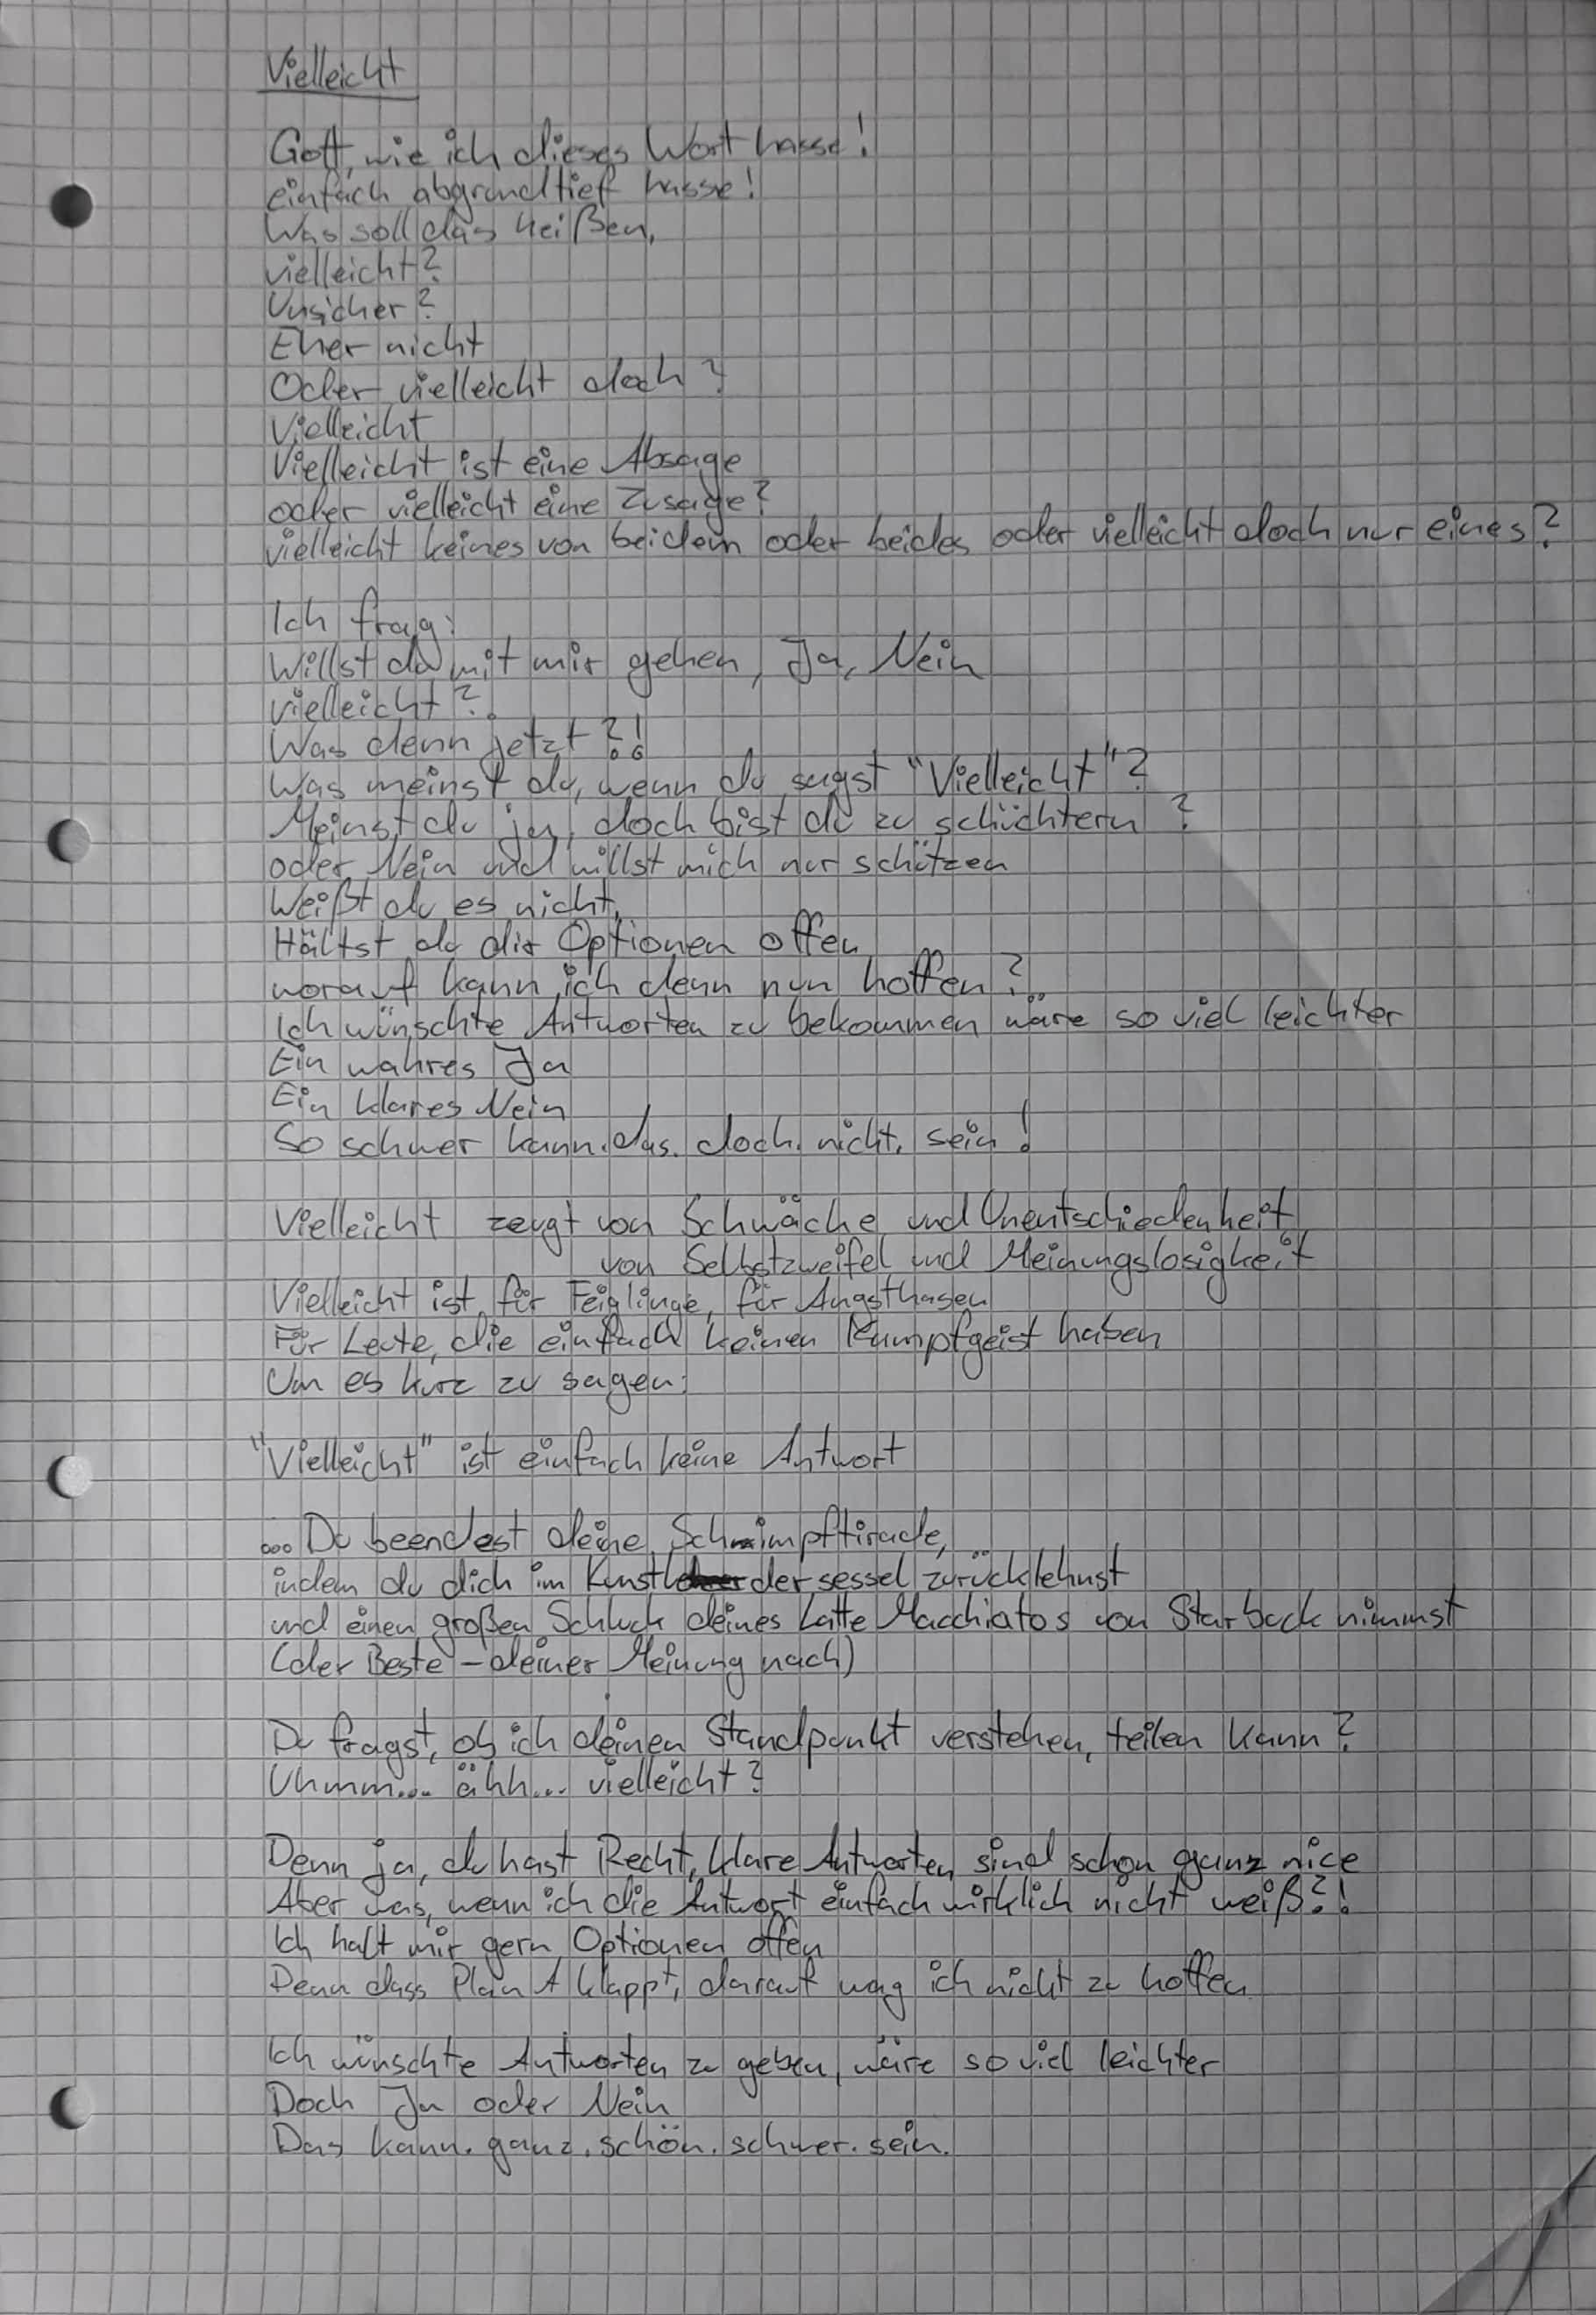 Vielleicht
Gott, wie ich dieses Wort hasse!
einfach abgrundtief hasse!
Was soll das heißen,
vielleicht?
Unsicher?
Eher nicht
Oder vielleicht doch?
Vielleicht
Vielleicht ist eine Absage
oder vielleicht eine Zusage?
vielleicht keines von beidem oder beides oder vielleicht doch nur eines?
Ich frag:
Willst du mit mir gehen, Ja, Nein
vielleicht?
Was denn jetzt?!
Was meinst du, wenn du sagst "Vielleicht"?
Meinst du ja, doch bist du zu schüchtern?
oder Nein und willst mich nur schützen
Weißt du es nicht,
Hältst du dir Optionen offen
worauf kann ich denn nun hoffen?
Ich wünschte Antworten zu bekommen wäre so viel leichter
Ein wahres Ja
Ein klares Nein
So schwer kann. das. doch. nicht. sein!
Vielleicht zeugt von Schwäche und Unentschiedenheit
von Selbstzweifel und Meinungslosigkeit
Vielleicht ist für Feiglinge, für Angsthasen
Für Leute, die einfach keinen Kampfgeist haben
Um es kurz zu sagen:
"Vielleicht" ist einfach keine Antwort
... Du beendest deine Schimpftirade,
indem du dich im Kunstldersessel zurücklehnst
und einen großen Schluck deines Latte Macchiatos von Starbuck nimmst
(der Beste - deiner Meinung nach)
Du fragst, ob ich deinen Standpunkt verstehen, teilen kann?
Uhmm... ähh... vielleicht?
Denn ja, du hast Recht, klare Antworten sind schon ganz nice
Aber was, wenn ich die Antwort einfach wirklich nicht weiß?!
Ich halt mir gern Optionen offen
Denn dass Plan A klappt, darauf wag ich nicht zu hoffen
Ich wünschte Antworten zu geben, wäre so viel leichter
Doch Ja oder Nein
Das kann. ganz. schön. schwer. sein.